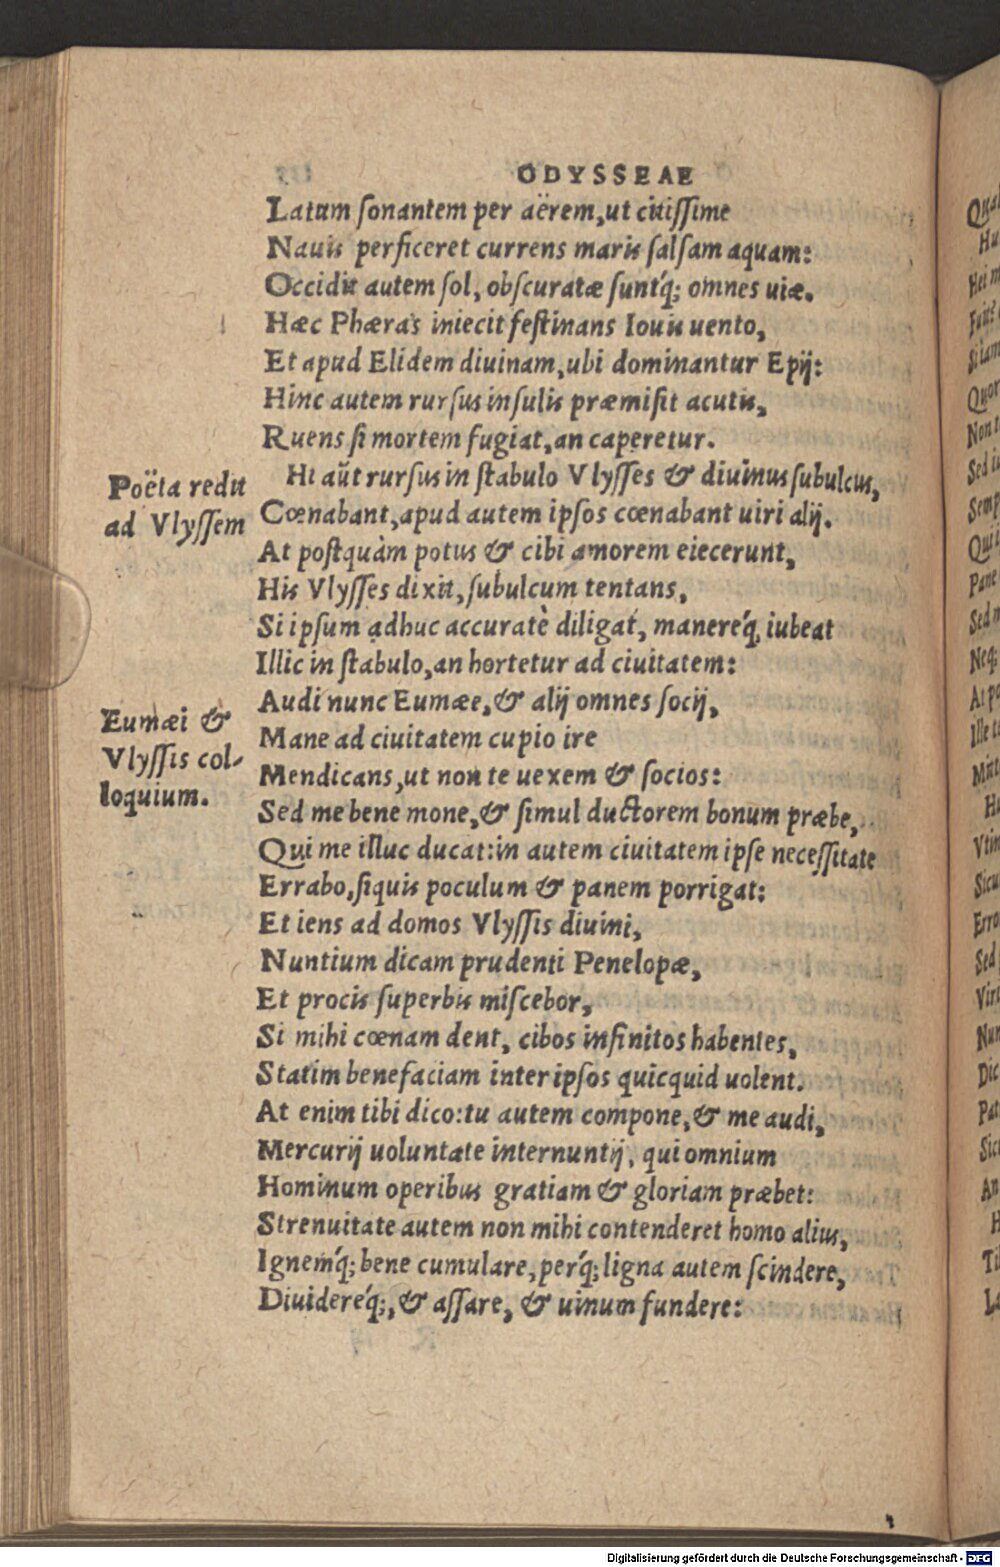 ODYSSEAE
Latum ſonantem per aërem, ut citiſſime
Nauis perficeret currens maris ſalſam aquam:
Occidit autem ſol, obſcuratæ ſuntq́; omnes uiæ.
Hæc Phæras iniecit feſtinans Iouis uento,
Et apud Elidem diuinam, ubi dominantur Epij:
Hinc autem rurſus inſulis præmiſit acutis,
Ruens ſi mortem fugiat, an caperetur.
Poëta redit
ad Vlyſſem
Hi aũt rurſus in ſtabulo Vlyſſes & diuinus ſubulcus,
Cœnabant, apud autem ipſos cœnabant uiri alij.
At poſtquàm potus & cibi amorem eiecerunt,
His Vlyſſes dixit, ſubulcum tentans,
Si ipſum adhuc accuratè diligat, manereq́, iubeat
Illic in ſtabulo, an hortetur ad ciuitatem:
Eumæi &
Vlyſſis col-
loquium.
Audi nunc Eumæe, & alij omnes ſocij,
Mane ad ciuitatem cupio ire
Mendicans, ut non te uexem & ſocios:
Sed me bene mone, & ſimul ductorem bonum præbe,
Qui me illuc ducat: in autem ciuitatem ipſe neceſſitate
Errabo, ſiquis poculum & panem porrigat:
Et iens ad domos Vlyſſis diuini,
Nuntium dicam prudenti Penelopæ,
Et procis ſuperbis miſcebor,
Si mihi cœnam dent, cibos infinitos habentes,
Statim benefaciam inter ipſos quicquid uolent.
At enim tibi dico: tu autem compone, & me audi,
Mercurij uoluntate internuntij, qui omnium
Hominum operibus gratiam & gloriam præbet:
Strenuitate autem non mihi contenderet homo alius,
Ignemq́; bene cumulare, perq́; ligna autem ſcindere,
Diuidereq́;, & aſſare, & uinum fundere:
Digitalisierung gefördert durch die Deutsche Forschungsgemeinschaft - DFG